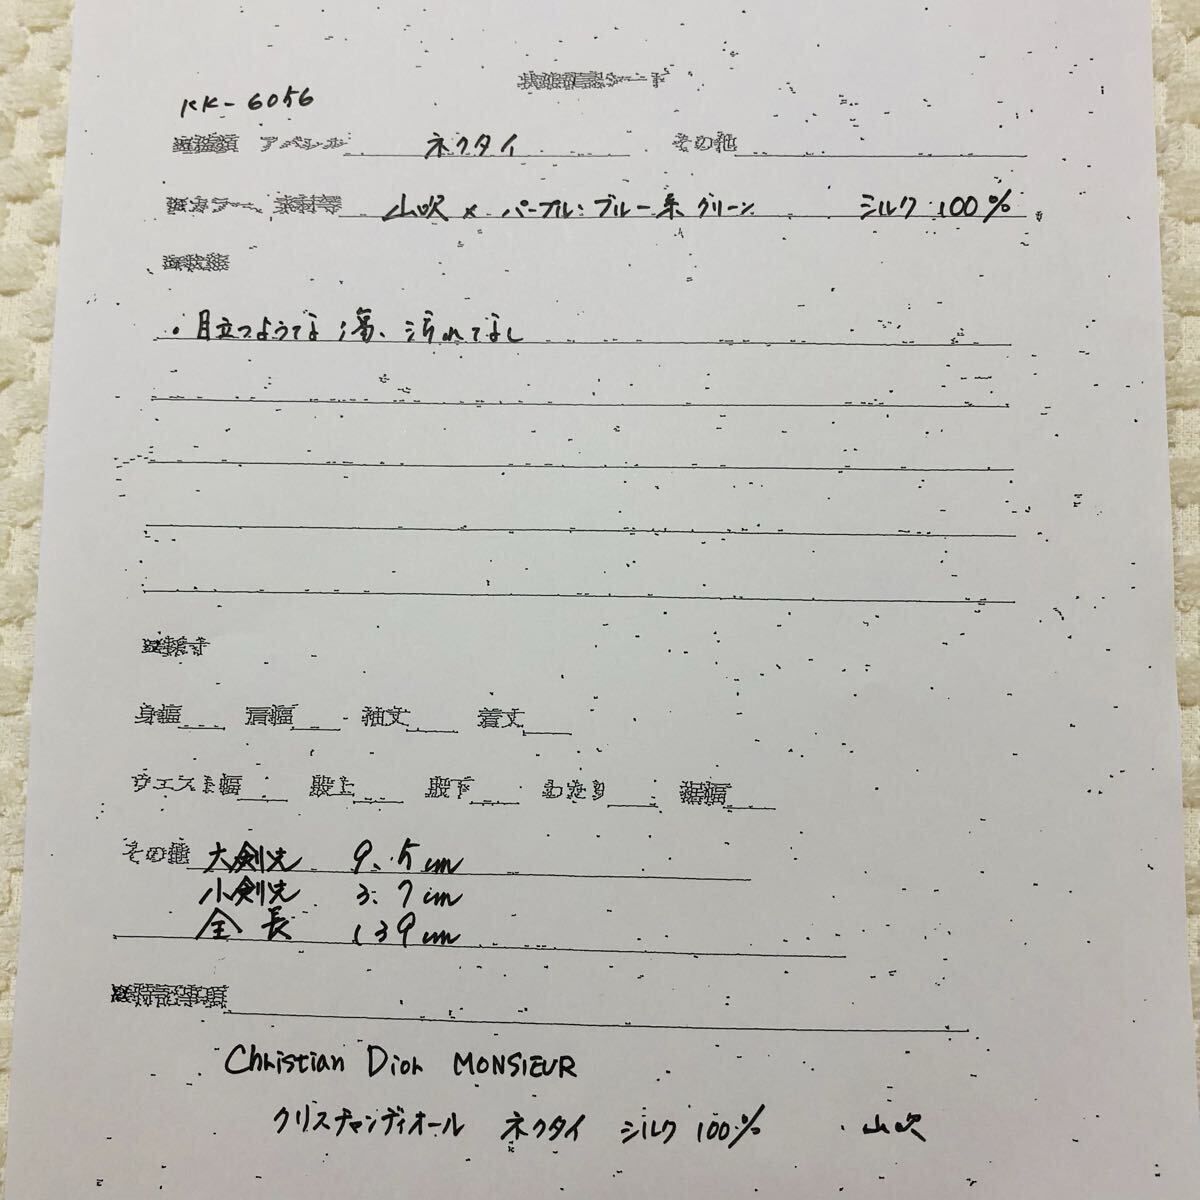 状態確認シート
KK-6056
アパレル ネクタイ その他
カラー、素材等 山吹 × パープル:ブルー系 グリーン シルク 100%
状態
・目立つような傷、汚れてなし
採寸
身幅 肩幅 袖丈 着丈
ウエスト幅 股上 股下 わたり 裾幅
その他 大剣先 9.5cm
小剣先 3.7cm
全長 139cm
特記事項
Christian Dior MONSIEUR
クリスチャンディオール ネクタイ シルク 100% 山吹